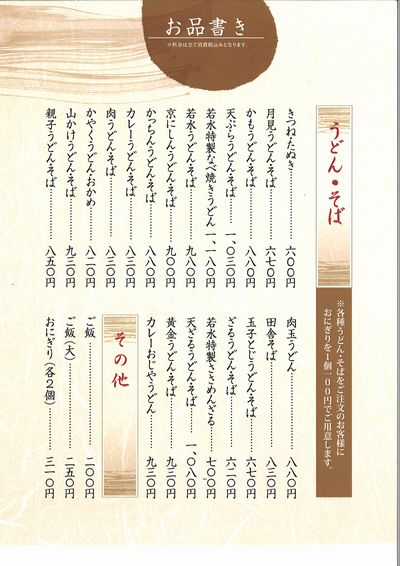 お品書き
※料金は全て消費税込みとなります。
うどん・そば
※各種うどん・そばをご注文のお客様に
おにぎりを1個一〇〇円でご用意します。
きつね・たぬき……六〇〇円
月見うどん・そば……六七〇円
かもうどん・そば……八八〇円
天ぷらうどん・そば……一、〇三〇円
若水特製なべ焼きうどん 一、一八〇円
若水うどん・そば……九八〇円
京にしんうどん・そば……九〇〇円
かっちんうどん・そば……八八〇円
カレーうどん・そば……八三〇円
肉うどん・そば……八三〇円
かやくうどん・おかめ……八二〇円
山かけうどん・そば……九三〇円
親子うどん・そば……八五〇円
肉玉うどん……八八〇円
田舎そば……八三〇円
玉子とじうどん・そば……六七〇円
ざるうどん・そば……六二〇円
若水特製……七〇〇円
天ざるうどん・そば……一、〇八〇円
黄金うどん・そば……九三〇円
カレーおじやうどん……九三〇円
その他
ご飯……二〇〇円
ご飯(大)……二五〇円
おにぎり(各2個)……三一〇円